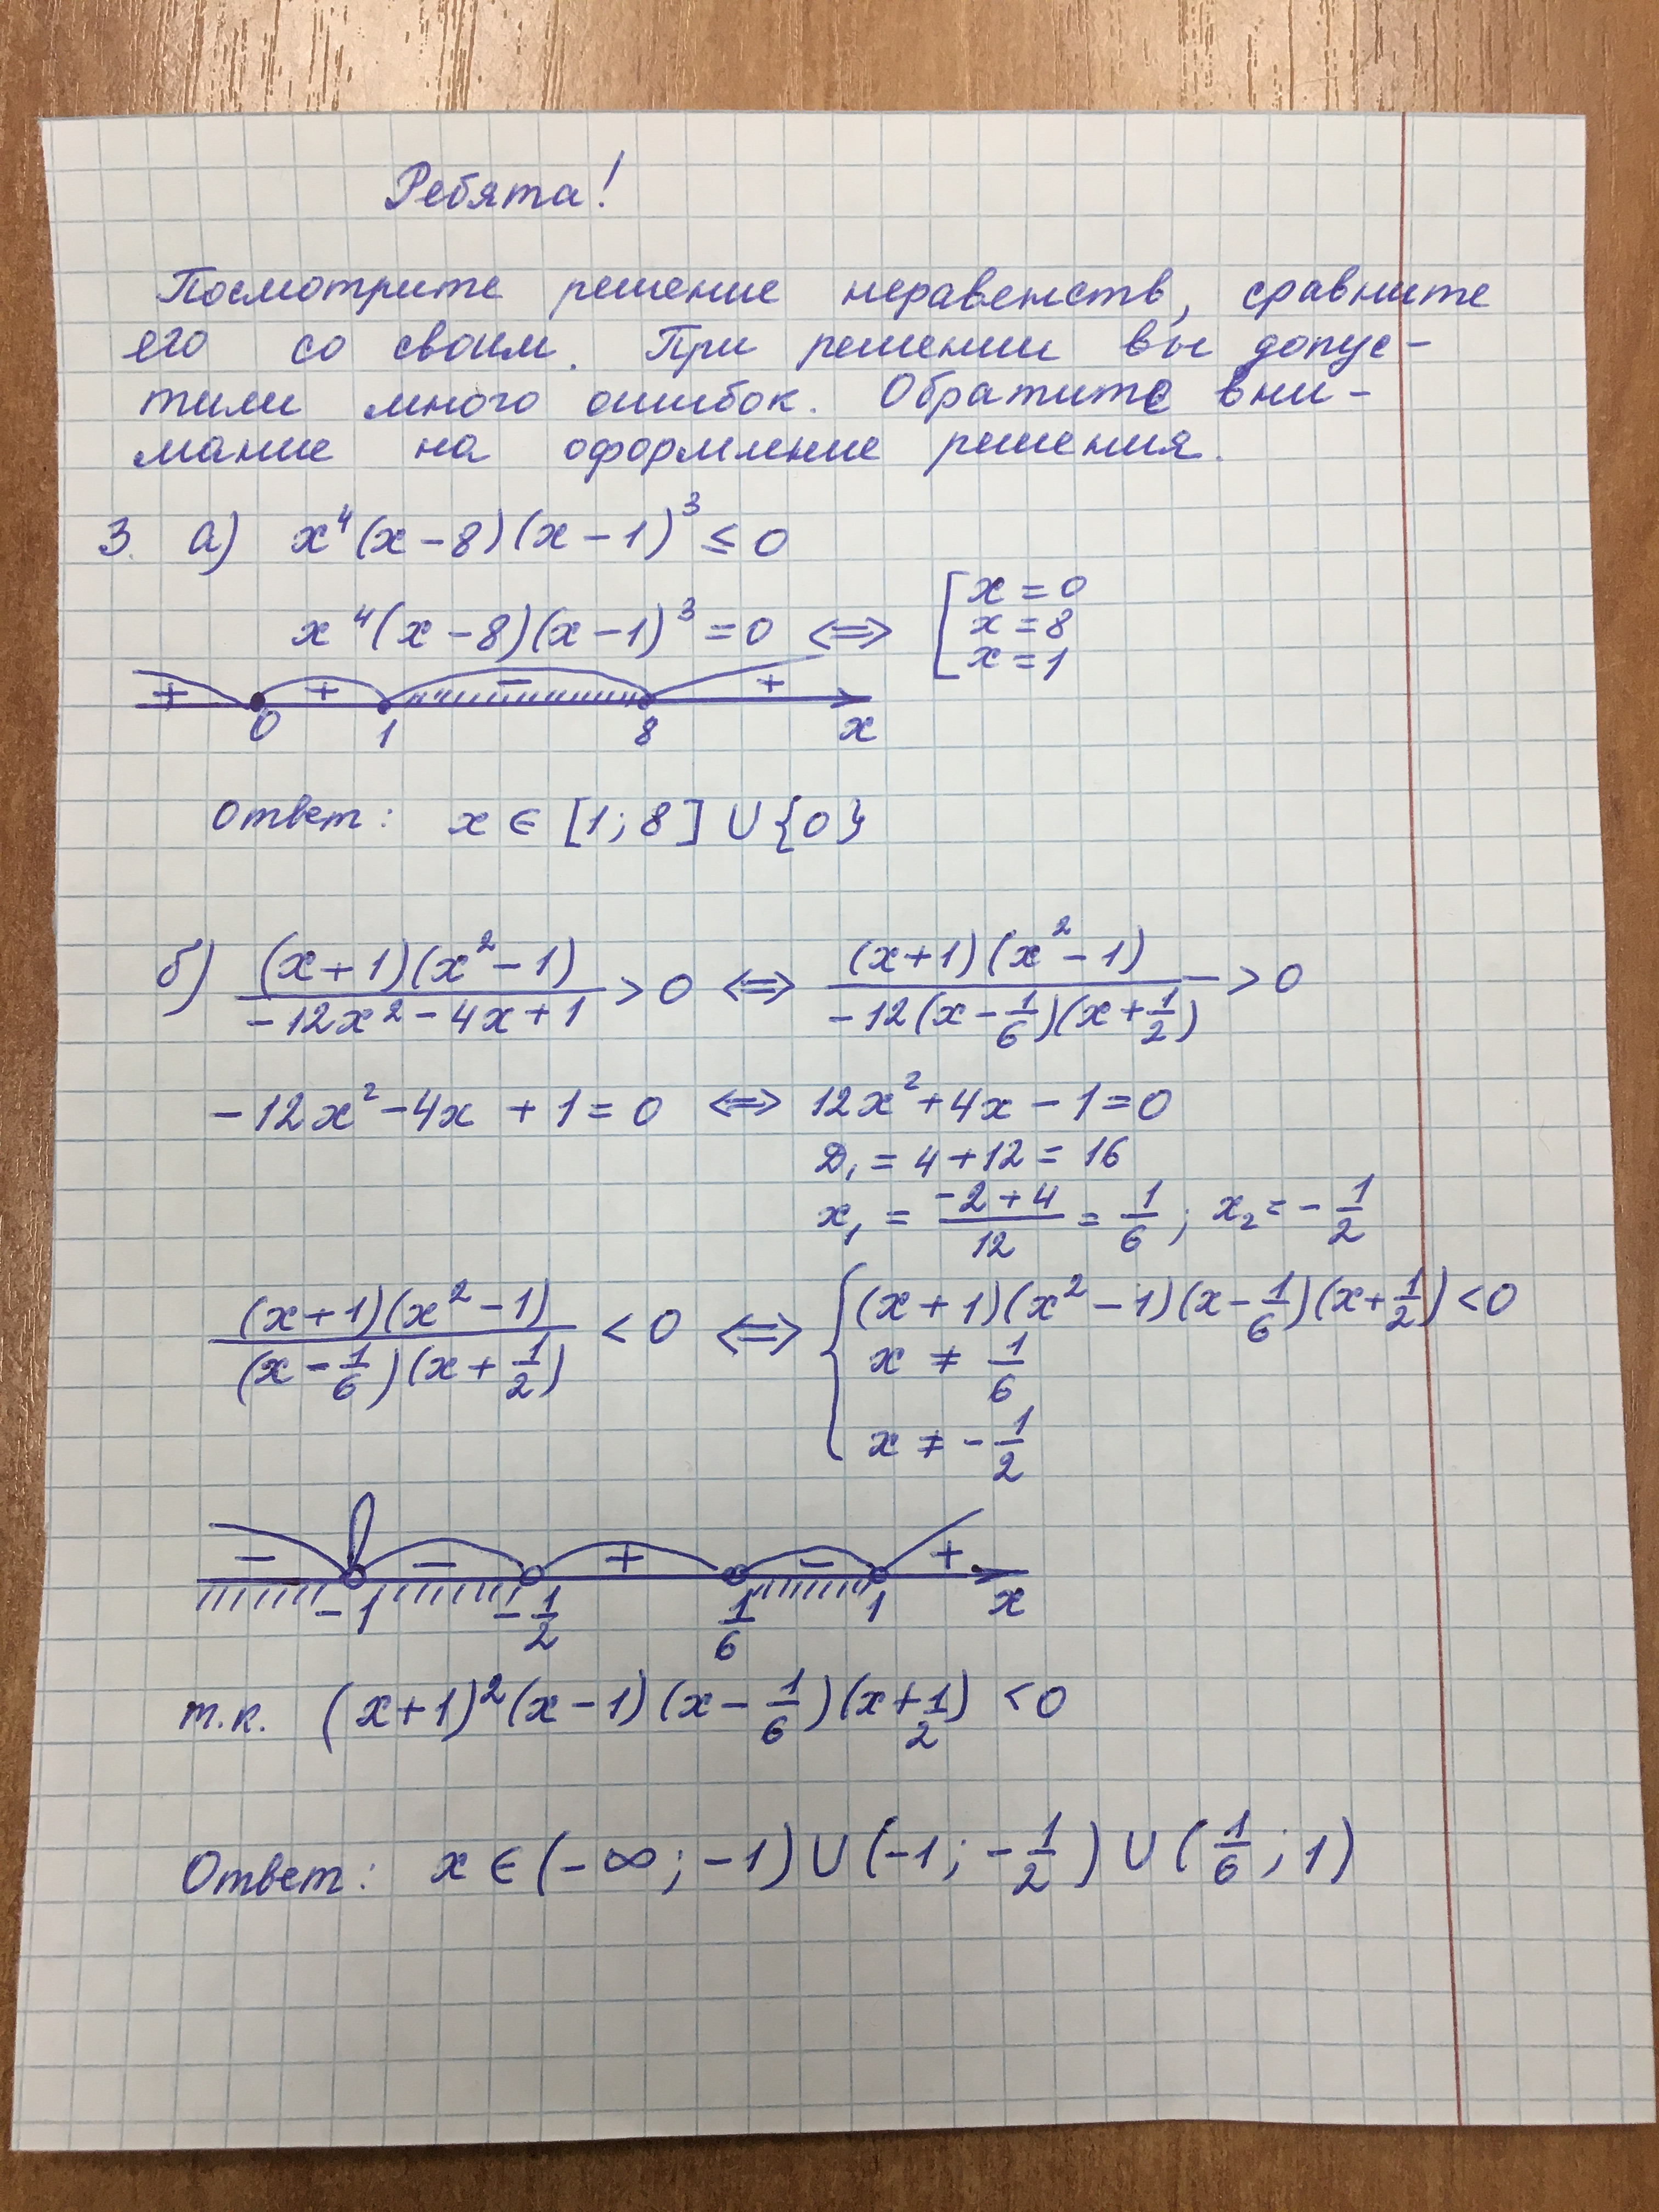 Ребята!
Посмотрите решение неравенств, сравните
его со своим. При решении вы допус-
тили много ошибок. Обратите вни-
мание на оформление решения.
3. а) x⁴(x-8)(x-1)³ ≤ 0
x⁴(x-8)(x-1)³ = 0 ⟺ [ x = 0
x = 8
x = 1
+ + - +
0 1 8 x
Ответ: x ∈ [1; 8] ∪ {0}
б) (x+1)(x²-1)/(-12x²-4x+1) > 0 ⟺ (x+1)(x²-1)/(-12(x-1/6)(x+1/2)) > 0
-12x²-4x+1=0 ⟺ 12x²+4x-1=0
D₁ = 4+12 = 16
x₁ = (-2+4)/12 = 1/6; x₂ = -1/2
(x+1)(x²-1)/((x-1/6)(x+1/2)) < 0 ⟺ { (x+1)(x²-1)(x-1/6)(x+1/2) < 0
x ≠ 1/6
x ≠ -1/2
- - + - +
-1 -1/2 1/6 1 x
т.к. (x+1)²(x-1)(x-1/6)(x+1/2) < 0
Ответ: x ∈ (-∞; -1) ∪ (-1; -1/2) ∪ (1/6; 1)